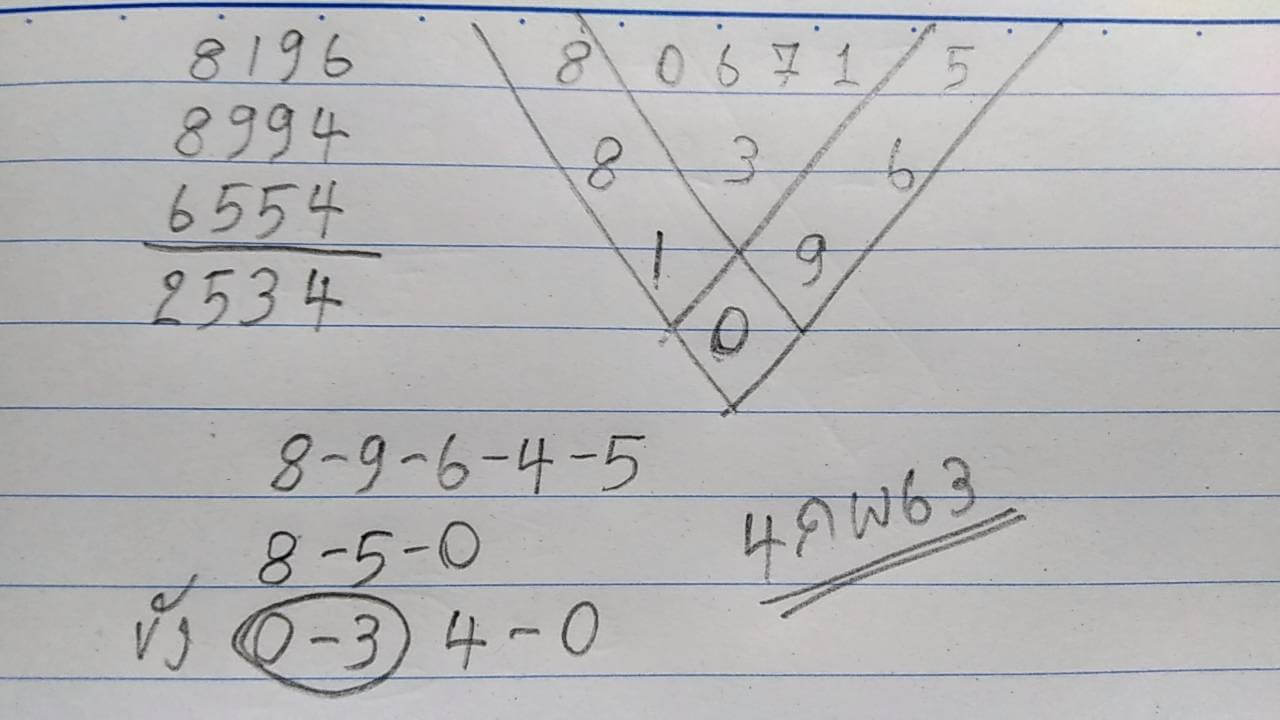 8196
8994
6554
2534
8 0 6 7 1 5
8 3 6
1 9
0
8-9-6-4-5
8-5-0
4 กพ 63
0-3 4-0